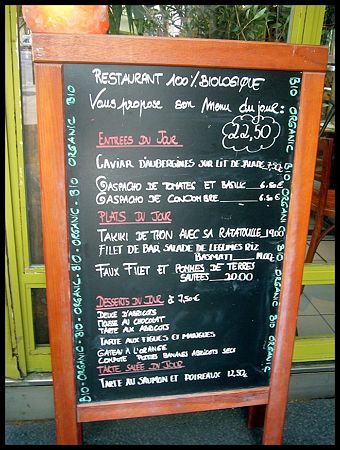 RESTAURANT 100% BIOLOGIQUE
Vous propose son Menu du jour:
22,50
ENTREES DU JOUR
CAVIAR D'AUBERGINES SUR LIT DE SALADE 7,50
GASPACHO DE TOMATES ET BASILIC 6.50€
GASPACHO DE CONCOMBRE 6.50€
PLATS DU JOUR
TATAKI DE THON AVEC SA RATATOUILLE 19,00
FILET DE BAR SALADE DE LEGUMES RIZ
BASMATI
FAUX FILET ET POMMES DE TERRES
SAUTEES 20.00
DESSERTS DU JOUR à 7,50€
DELICE D'ABRICOTS
MOUSSE AU CHOCOLAT
TARTE AUX ABRICOTS
TARTE AUX FIGUES ET MANGUES
GATEAU A L'ORANGE
COMPOTE POMMES BANANES ABRICOTS SECS
TARTE SALEE DU JOUR
TARTE AU SAUMON ET POIREAUX 12,50€
BIO - ORGANIC - BIO - ORGANIC - BIO - ORGANIC - BIO - ORGANIC
BIO ORGANIC BIO ORGANIC BIO ORGANIC BIO ORGANIC